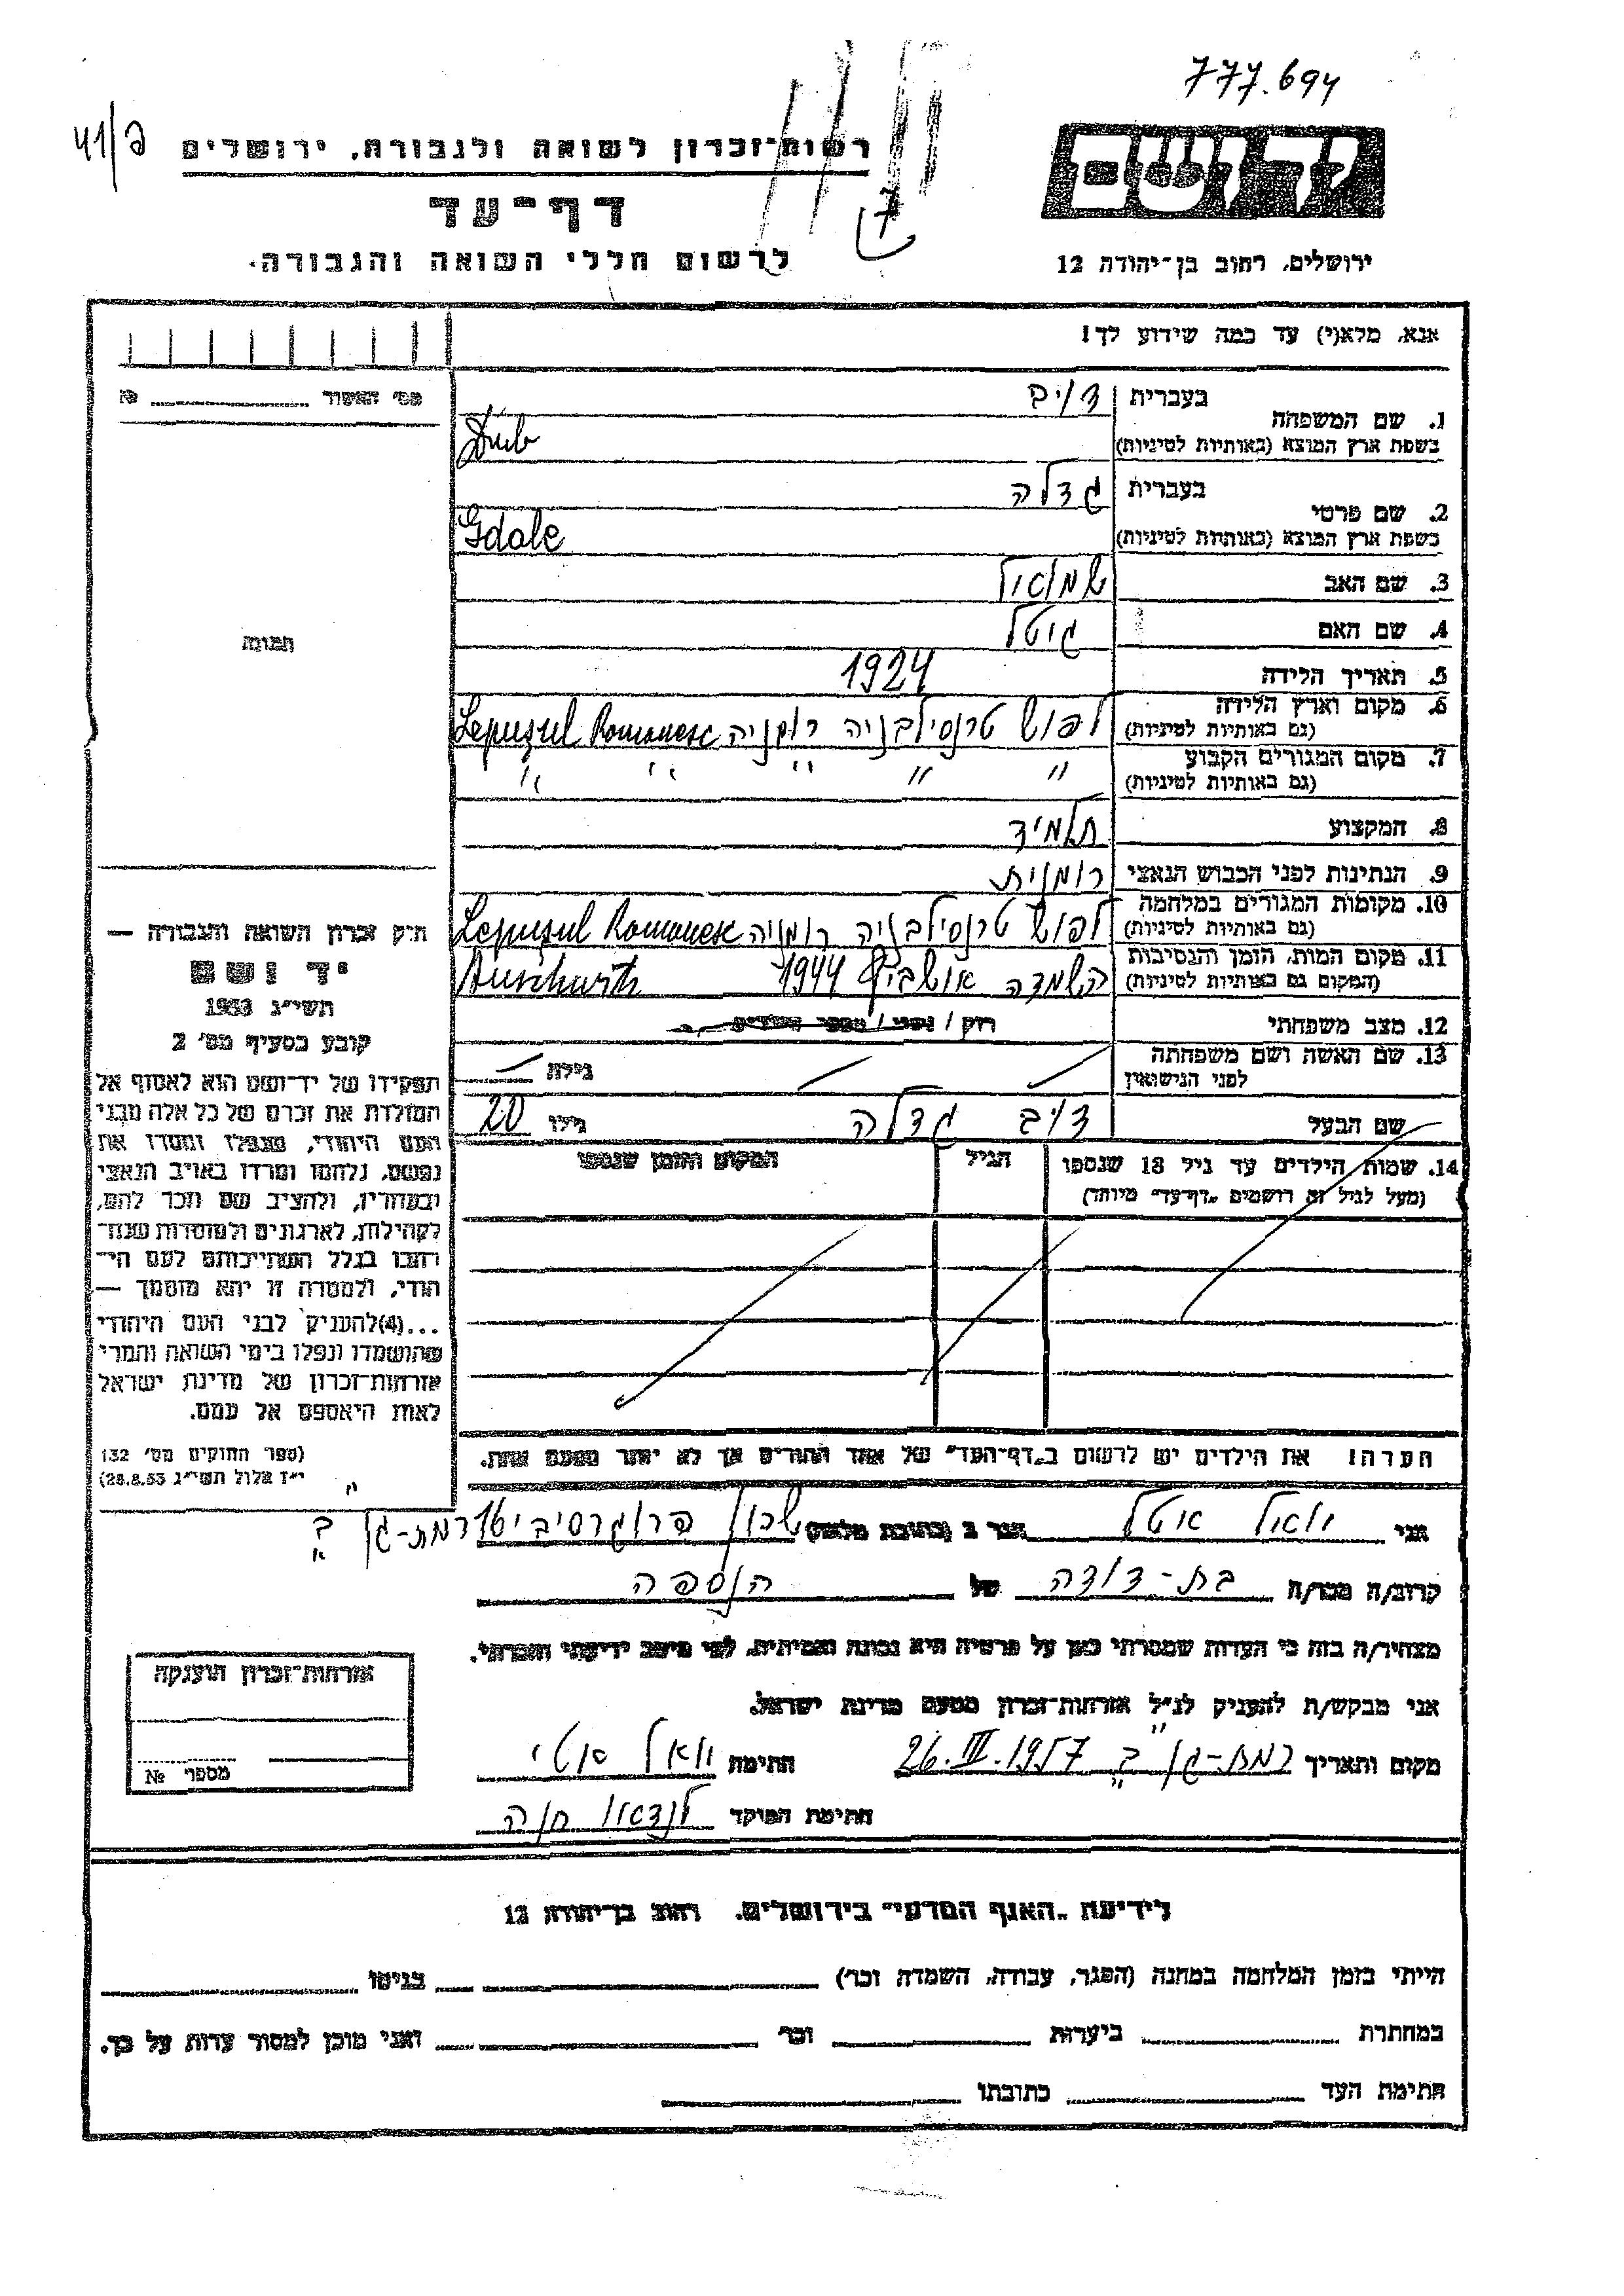 777.694
41/ג
רשות־זכרון לשואה ולגבורה, ירושלים
דף־עד
לרשום חללי השואה והגבורה.
7
יד ושם
ירושלים, רחוב בן־יהודה 12
אנא, מלא(י) עד כמה שידוע לך!
מס׳ האשור № ........
1. שם המשפחה בעברית דויב
בשפת ארץ המוצא (באותיות לטיניות) Duib
2. שם פרטי בעברית גדלה
בשפת ארץ המוצא (באותיות לטיניות) Gdale
3. שם האב שמואל
4. שם האם גיטל
תמונה
5. תאריך הלידה 1924
6. מקום וארץ הלידה (גם באותיות לטיניות) לפוש טרנסילבניה רומניה Lepuşul Romanesc
7. מקום המגורים הקבוע (גם באותיות לטיניות) " " " " "
8. המקצוע תלמיד
9. הנתינות לפני הכבוש הנאצי רומנית
10. מקומות המגורים במלחמה (גם באותיות לטיניות) לפוש טרנסילבניה רומניה Lepuşul Romanesc
11. מקום המות, הזמן והנסיבות (המקום גם באותיות לטיניות) השמדה אושביץ 1944 Auschwitz
12. מצב משפחתי רוק / נשוי / מספר הילדים
13. שם האשה ושם משפחתה לפני הנישואין גילה
שם הבעל דויב גדלה גילו 20
14. שמות הילדים עד גיל 18 שנספו הגיל המקום והזמן שנספו
(מעל לגיל זה רושמים „דף־עד" מיוחד)
חק זכרון השואה והגבורה —
יד ושם
תשי״ג 1953
קובע בסעיף מס׳ 2
תפקידו של יד־ושם הוא לאסוף אל
המולדת את זכרם של כל אלה מבני
העם היהודי, שנפלו ומסרו את
נפשם, נלחמו ומרדו באויב הנאצי
ובעוזריו, ולהציב שם וזכר להם,
לקהילות, לארגונים ולמוסדות שנח־
רבו בגלל השתייכותם לעם הי־
הודי, ולמטרה זו יהא מוסמך —
...(4)להעניק לבני העם היהודי
שהושמדו ונפלו בימי השואה והמרי
אזרחות־זכרון של מדינת ישראל
לאות היאספם אל עמם.
(ספר החוקים מס׳ 132
י״ז אלול תשי״ג 28.8.53)
הערה! את הילדים יש לרשום ב„דף־העד" של אחד ההורים אך לא יותר מפעם אחת.
אני יואל איטל הגר ב (כתובת מלאה) שכון פרוגרסיבי 16 רמת-גן ב׳
קרוב/ה מכר/ה בת-דודה של הנספה
מצהיר/ה בזה כי העדות שמסרתי כאן על פרטיה היא נכונה ואמיתית, לפי מיטב ידיעתי והכרתי.
אני מבקש/ת להעניק לנ״ל אזרחות־זכרון מטעם מדינת ישראל.
מקום ותאריך רמת-גן ב׳ 26.III.1957 חתימת יואל
חתימת הפוקד לנדאו חנה
אזרחות־זכרון הוענקה
מספרי №
לידיעת „האגף המדעי" בירושלים. רחוב בן־יהודה 12
הייתי בזמן המלחמה במחנה (הסגר, עבודה, השמדה וכר׳) בגיטו
במחתרת ביערות וכר׳ ואני מוכן למסור עדות על כך.
חתימת העד כתובתו